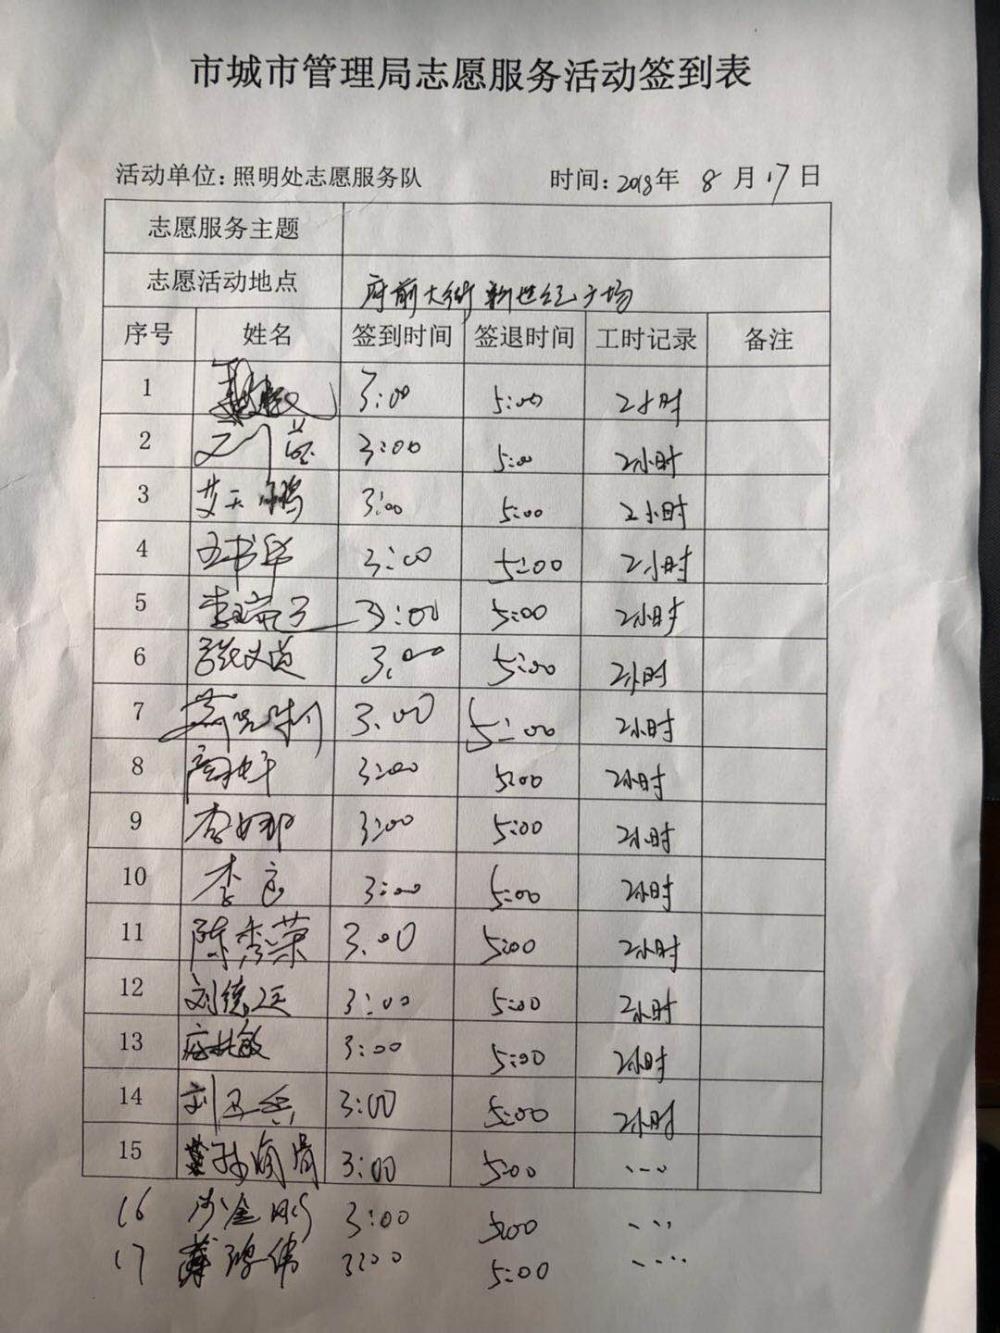 市城市管理局志愿服务活动签到表
活动单位:照明处志愿服务队 时间:2018年 8 月 17 日
志愿服务主题
志愿活动地点 府前大街 新世纪广场
序号 姓名 签到时间 签退时间 工时记录 备注
1 3:00 5:00 2小时
2 3:00 5:00 2小时
3 艾天鹏 3:00 5:00 2小时
4 3:00 5:00 2小时
5 3:00 5:00 2小时
6 3:00 5:00 2小时
7 3:00 5:00 2小时
8 3:00 5:00 2小时
9 李娜 3:00 5:00 2小时
10 李良 3:00 5:00 2小时
11 陈秀荣 3:00 5:00 2小时
12 刘德 3:00 5:00 2小时
13 3:00 5:00 2小时
14 刘 3:00 5:00 2小时
15 3:00 5:00 ...
16 金刚 3:00 5:00 ...
17 3:00 5:00 ....